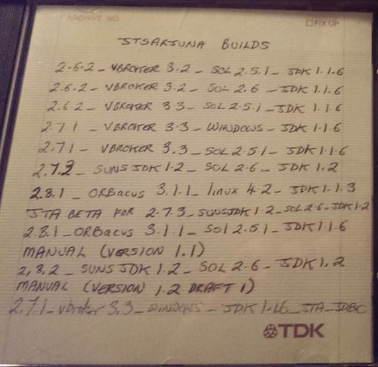 ARCHIVE NO.
FIX UP
JTSARJUNA BUILDS
2.6.2 - VBROKER 3.2 - SOL 2.5.1 - JDK 1.1.6
2.6.2 - VBROKER 3.2 - SOL 2.6 - JDK 1.1.6
2.6.2 - VBROKER 3.3 - SOL 2.5.1 - JDK 1.1.6
2.7.1 - VBROKER 3.3 - WINDOWS - JDK 1.1.6
2.7.1 - VBROKER 3.3 - SOL 2.5.1 - JDK 1.1.6
2.7.3 - SUNS JDK 1.2 - SOL 2.6 - JDK 1.2
2.8.1 - ORBACUS 3.1.1 - LINUX 4.2 - JDK 1.1.3
JTA BETA FOR 2.7.3 - SUNSJDK 1.2 - SOL 2.6 - JDK 1.2
2.8.1 - ORBACUS 3.1.1 - SOL 2.5.1 - JDK 1.1.6
MANUAL (VERSION 1.1)
2.8.2 - SUNS JDK 1.2 - SOL 2.6 - JDK 1.2
MANUAL (VERSION 1.2 DRAFT 1)
2.7.1 - VBROKER 3.3 - WINDOWS - JDK 1.1.6 - JTA - JDBC
TDK